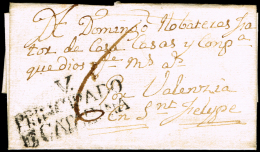 Dn Domingo Nobateras Fa
tor de Casa Casas y Compa
que dios gue ms as
por Valencia
en Snt Felype
V.
PRINCIPADO
D CATALUÑA